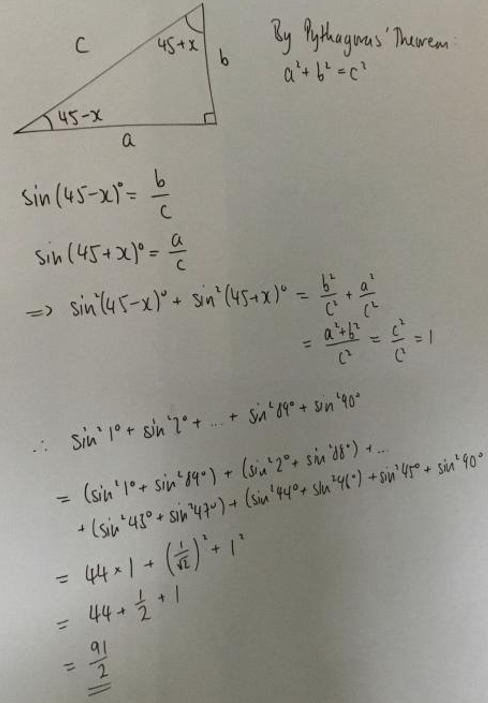 c
45+x
b
45-x
a
By Pythagoras' Theorem:
a²+b²=c²
sin(45-x)°= b/c
sin(45+x)°= a/c
=> sin²(45-x)°+ sin²(45+x)° = b²/c² + a²/c²
= a²+b²/c² = c²/c² = 1
∴ sin²1°+ sin²2°+ ... + sin²89°+ sin²90°
= (sin²1°+ sin²89°) + (sin²2°+ sin²88°) + ...
+ (sin²43°+ sin²47°) + (sin²44°+ sin²46°) + sin²45°+ sin²90°
= 44×1 + (1/√2)² + 1²
= 44 + 1/2 + 1
= 91/2